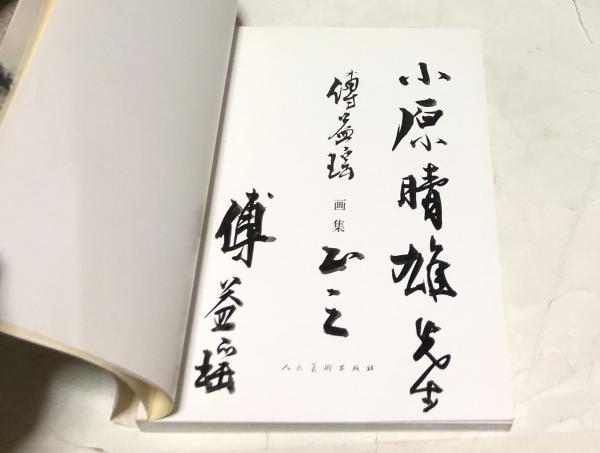 小原晴雄先生
傅益瑶
画集
正之
傅益瑶
人民美術出版社